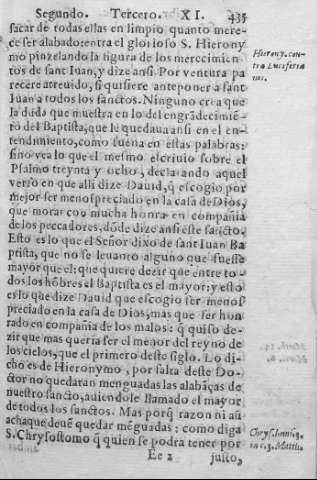 Segundo. Tercero. XI. 435
sacar de todas ellas en limpio quanto mere-
ce ser alabado: entra el glorioso S. Hierony
mo pinzelando la figura de los merecimien
tos de sant Iuan, y dize ansi. Por ventura pa
recere atreuido, si quisiere anteponer a sant
Iuan a todos los sanctos. Ninguno crea que
la duda que muestra en lo del engrãdecimiẽ-
to del Baptista, que le quedaua ansi en el en-
tendimiento, como suena en estas palabras:
sino vea lo que el mesmo escriuio sobre el
Psalmo treynta y ocho, declarando aquel
verso en que alli dize Dauid, q̃ escogio por
mejor ser menospreciado en la casa de Dios,
que morar con mucha honra en compañia
de los peccadores, dõde dize ansi este sancto.
Esto es lo que el Señor dixo de sant Iuan Ba
ptista, que no se leuanto alguno que fuesse
mayor que el: que quiere dezir que entre to-
dos los hõbres el Baptista es el mayor: y esto
es lo que dize Dauid que escogio ser menos
preciado en la casa de Dios, mas que ser hon
rado en compañia de los malos: q̃ quiso de-
zir que mas queria ser el menor del reyno de
los cielos, que el primero deste siglo. Lo di-
cho es de Hieronymo, por falta deste Do-
ctor no quedaran menguadas las alabãças de
nuestro sancto, auiendole llamado el mayor
de todos los sanctos. Mas porq̃ razon ni aũ
achaque deuẽ quedar mẽguadas: como diga
S. Chrysostomo q̃ quien se podra tener por
Ee 2 justo,
Hierony. con-
tra Luciferia
nos.
Chrys. homi. 3.
in c. 3. Matth.